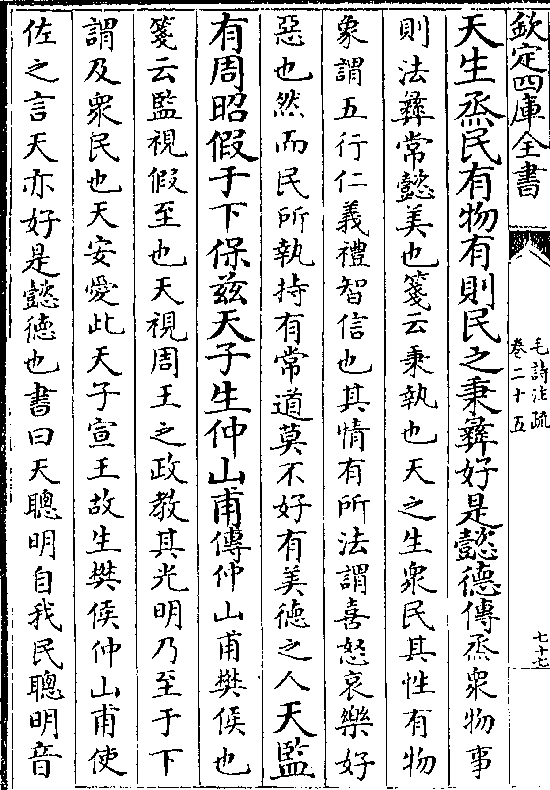 欽定四庫全書
毛詩注疏
卷二十五
七十七
天生烝民有物有則民之秉彞好是懿德傳烝衆物事
則法彞常懿美也箋云秉執也天之生衆民其性有物
象謂五行仁義禮智信也其情有所法謂喜怒哀樂好
惡也然而民所執持有常道莫不好有美德之人天監
有周昭假于下保兹天子生仲山甫傳仲山甫樊侯也
箋云監視假至也天視周王之政教其光明乃至于下
謂及衆民也天安愛此天子宣王故生樊侯仲山甫使
佐之言天亦好是懿德也書曰天聰明自我民聰明音